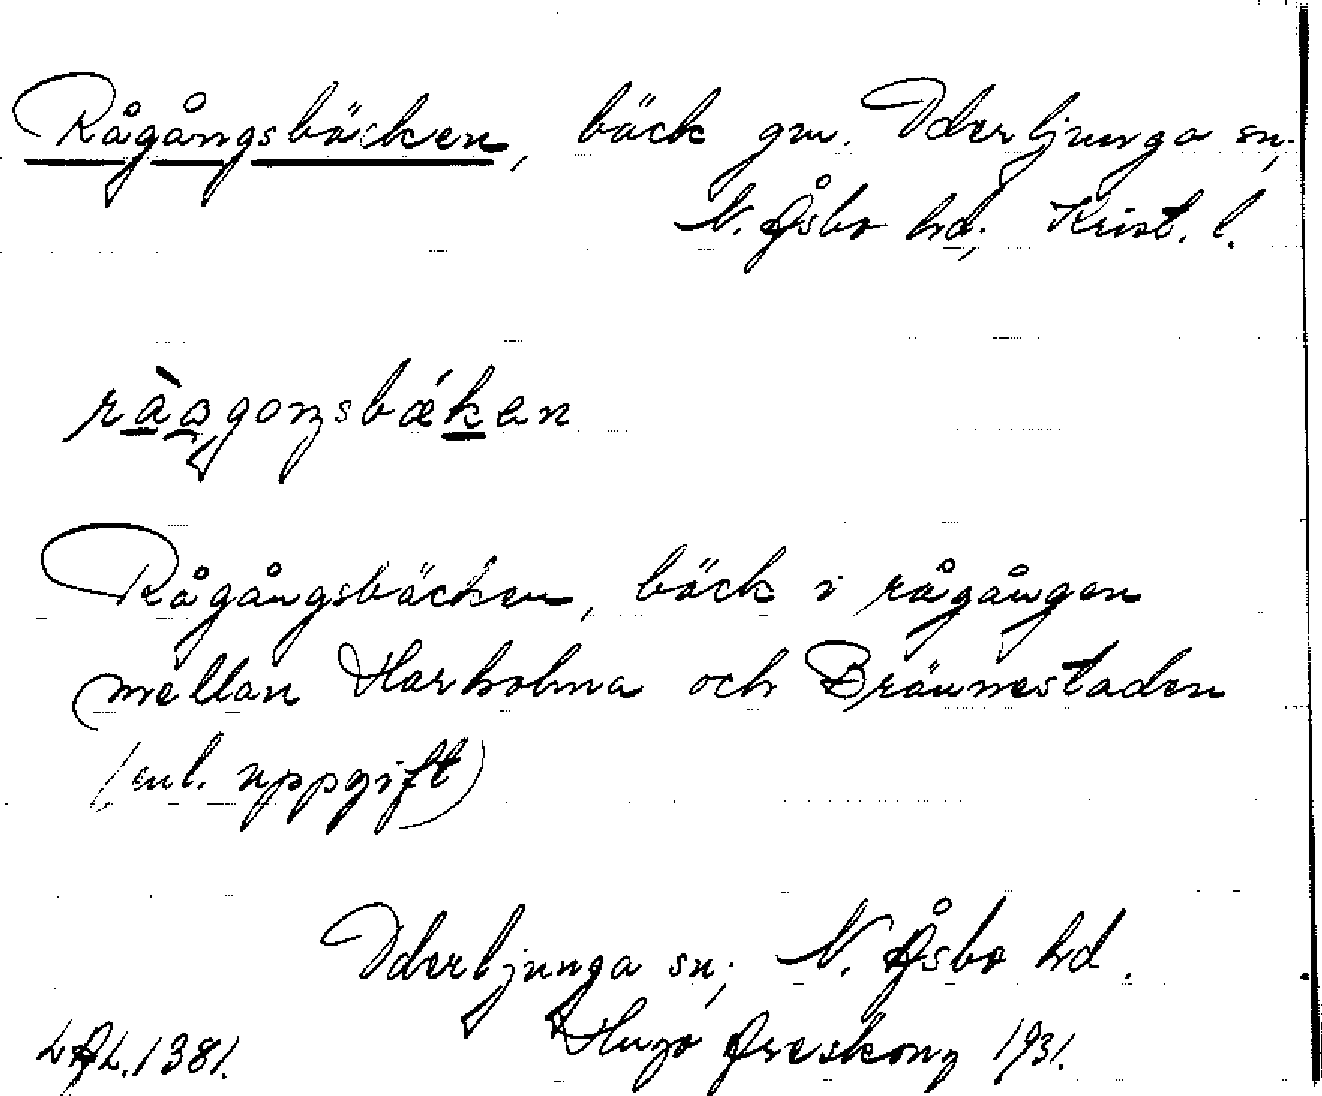 Rågångsbäcken, bäck gm. Oderljunga sn,
N. Åsbo hd; Krist. l.
ràa̱goŋsbækan
Rågångsbäcken, bäck i rågången
mellan Harholma och Brännestaden
(enl. uppgift)
Oderljunga sn; N. Åsbo hd.
LAL. 1381. Hugo Areskoug 1931.